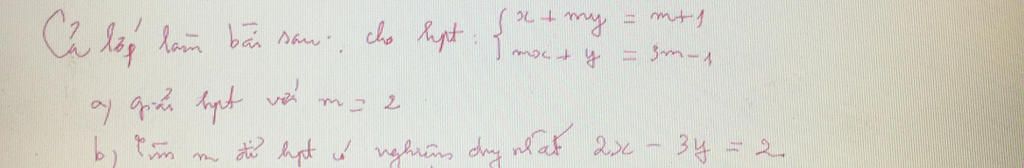 Cả lớp làm bài sau: cho hpt: { x + my = m+1
mx + y = 3m-1
a) giải hpt với m = 2
b) Tìm m để hpt có nghiệm duy nhất 2x - 3y = 2